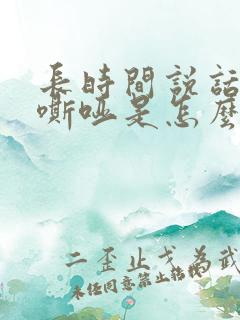 長時間説話
嘶啞是怎麼
二歪止戈為武
未经同意禁止转载